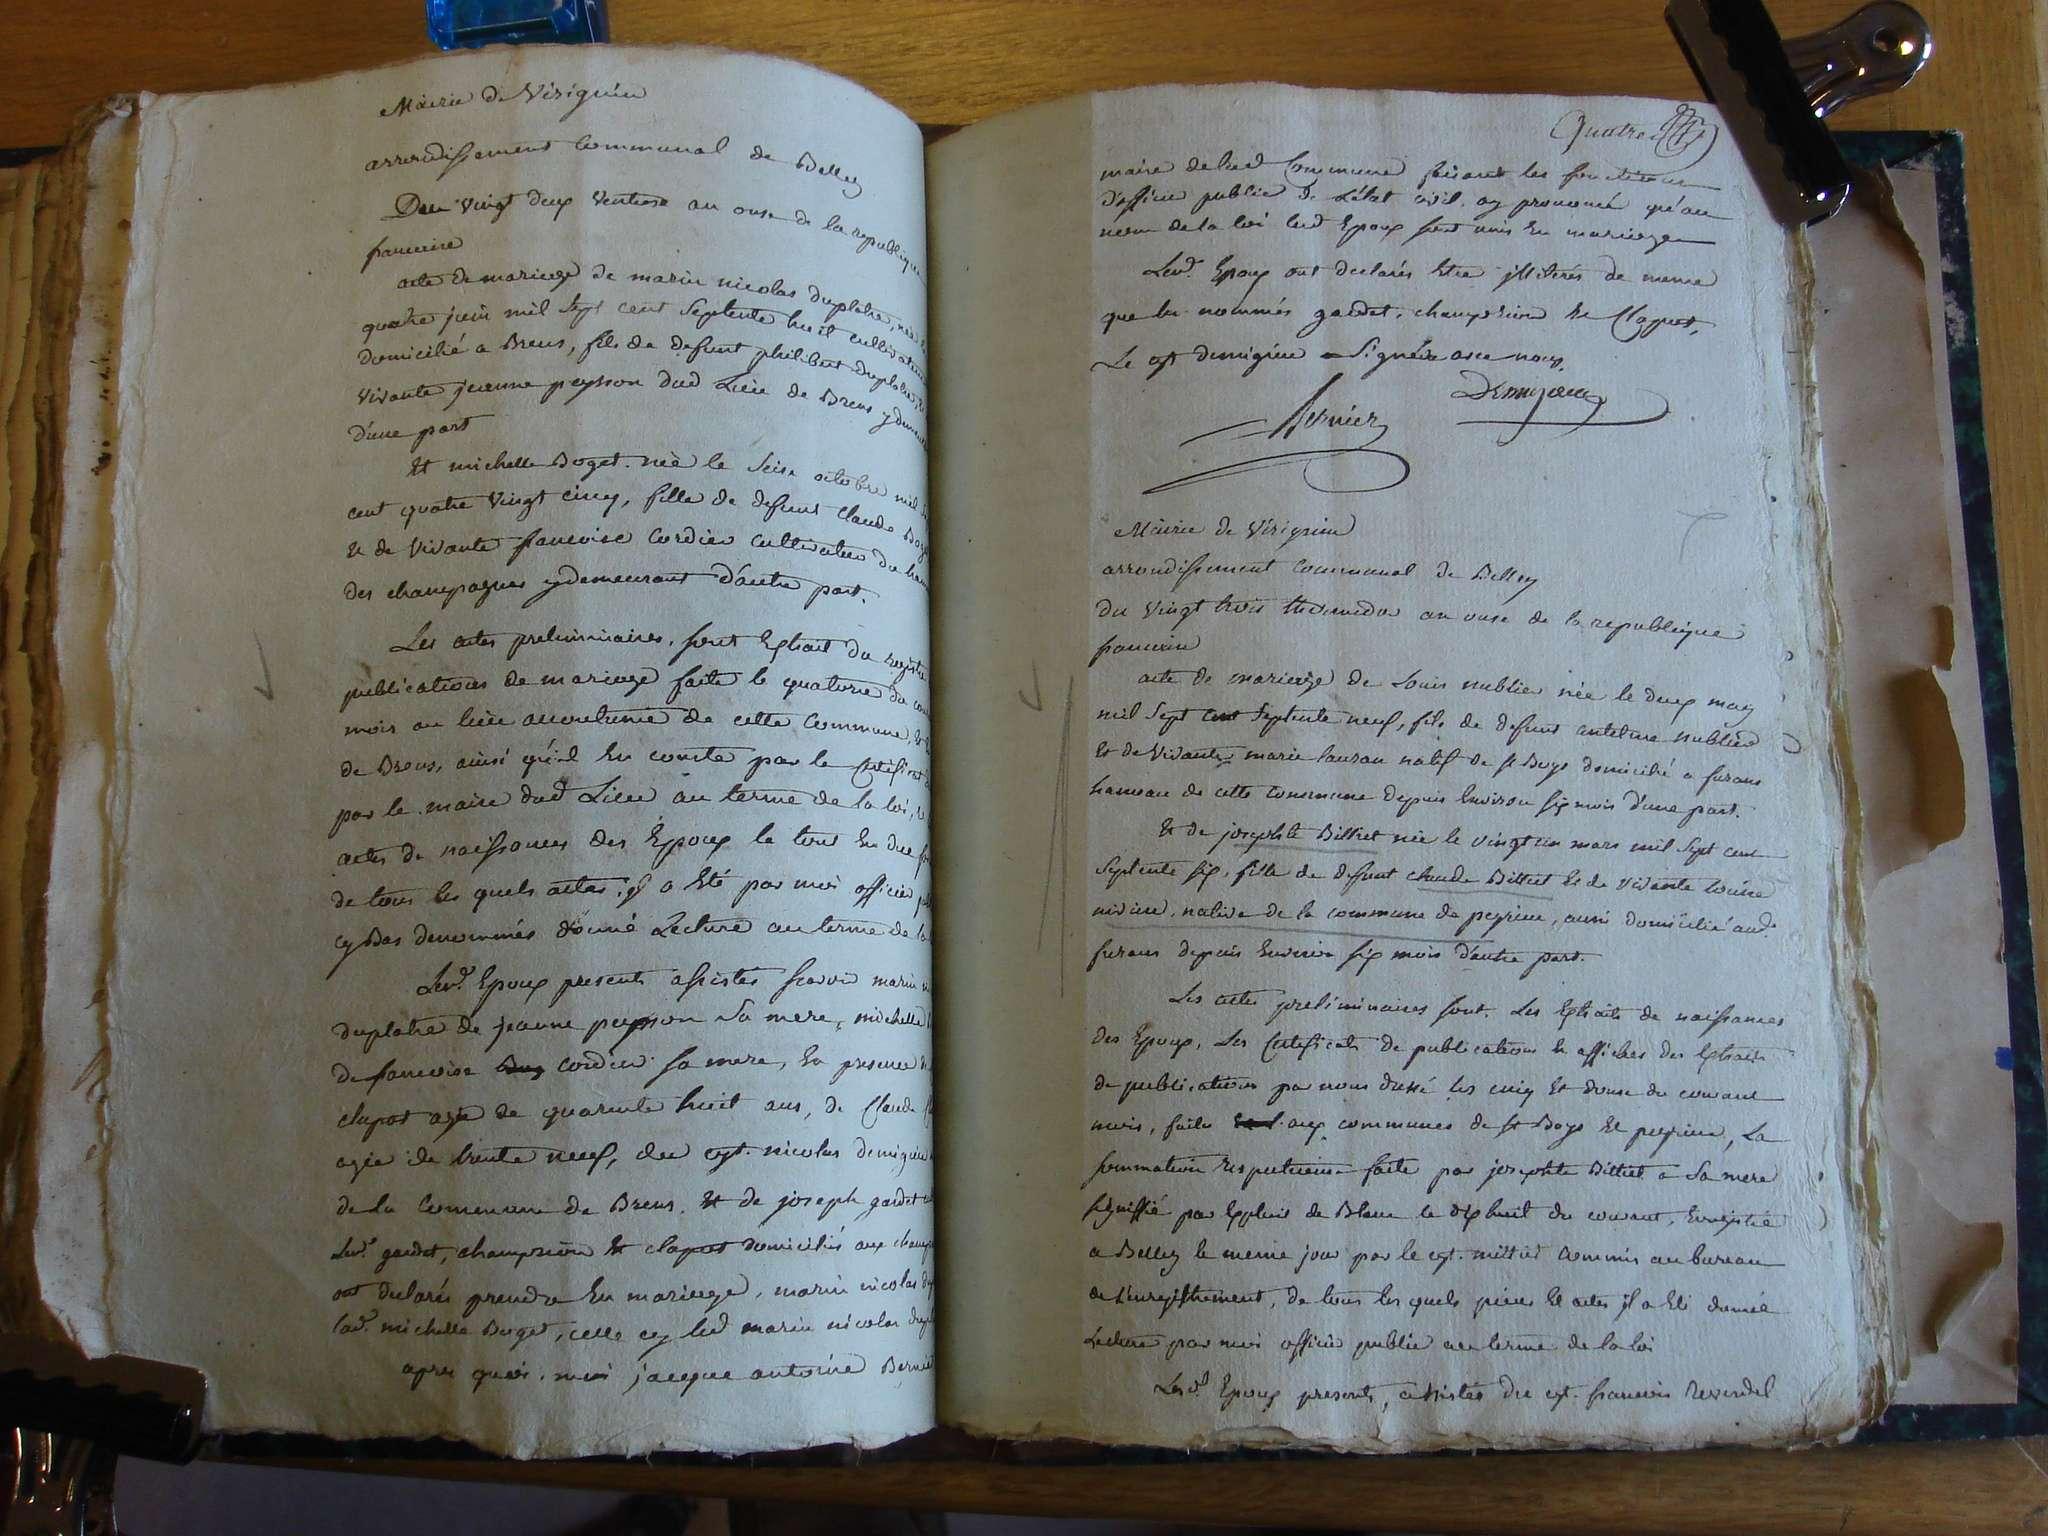 Mairie de Virignin
arrondissement Communal de Belley
Du vingt deux Ventose an onse de la republique
francaise
acte de mariage de marin nicolas duplatre, née le
quatre juin mil sept cent septente huit cultivateur
domicilié a Brens, fils de defunt philibert duplatre, et
vivante jeanne peysson dud Lieu de Brens y demeurant
d'une part
Et michelle Boget. née le seise octobre mil
cent quatre vingt cinq, fille de defunt Claude Boget
et de Vivante francoise Cordier cultivateur du
des champagnes y demeurant d'autre part.
Les actes preliminaires, sont Extrait du registre
publications de mariage faite le quatorse du
mois au lieu accoutumé de cette Commune, et
de Brens, ainsi qu'il En conste par le Certificat
par le maire dud Lieu au terme de la loi,
actes de naissances des Epoux le tout En due
de tous les quels actes, il a Eté par moi officier
cy Bas denommés donné Lecture au terme de la
Lesd. Epoux presents assistés scavoir marin
duplatre de jeanne peysson Sa mere, michelle
de francoise Cordier sa mere, En presence
clapot agé de quarente huit ans, de Claude
agée de trente neuf, du cyt. nicolas demigieu
de la Commune de Brens. Et de joseph gaudet
Lesd. gaudet, champrion Et clapot domiciliés aux
ont declarés prendre En mariage, marin nicolas
lad. michelle Buget, celle cy led marin nicolas
apres quoi. moi jacque antoine Bernier
Quatre
maire de lad Commune faisant les fonctions
d'officier public de L'état civil. ay prononcé qu'au
nom de la loi lesd Epoux sont unis En mariage
Lesd. Epoux ont declarés Etre illiterés de meme
que les nommés gaudet, champrion Et Clapot,
Le cyt demigieu a Signé avec nous.
Bernier
Mairie de Virignin
arrondissement Communal de Belley
du Vingt trois thermidor an onse de la republique
francaise
acte de mariage de Louis nublier née le deux may
mil sept cent septente neuf, fils de defunt antelme nublier
Et de Vivante marie lauran natif de St Boys domicilié a furans
hameau de cette commune depuis Environ six mois d'une part.
Et de josephte Billiet née le vingt un mars mil sept cent
septente six, fille de defunt claude Billiet Et de vivante Louise
native de la commune de peyrieu, aussi domiciliée aud.
furans depuis Environ six mois d'autre part.
Les actes preliminaires sont. Les Extraits de naissances
des Epoux, Les Certificats de publications Et affiches des Extraits
de publications par nous dressé les cinq Et douse du courant
mois, faites aux communes de St Boys Et peyrieu, La
sommation respectueuse faite par josephte Billiet a Sa mere
signiffié par Exploit de Blanc le dix huit du courant, Enregistré
a Belley le meme jour par le cyt. commis au bureau
de L'enregistrement, de tous les quels pieces Et actes il a Eté donnée
Lecture par moi officier public au terme de la loi
Lesd. Epoux presents, assistés du cyt. francois reverdel